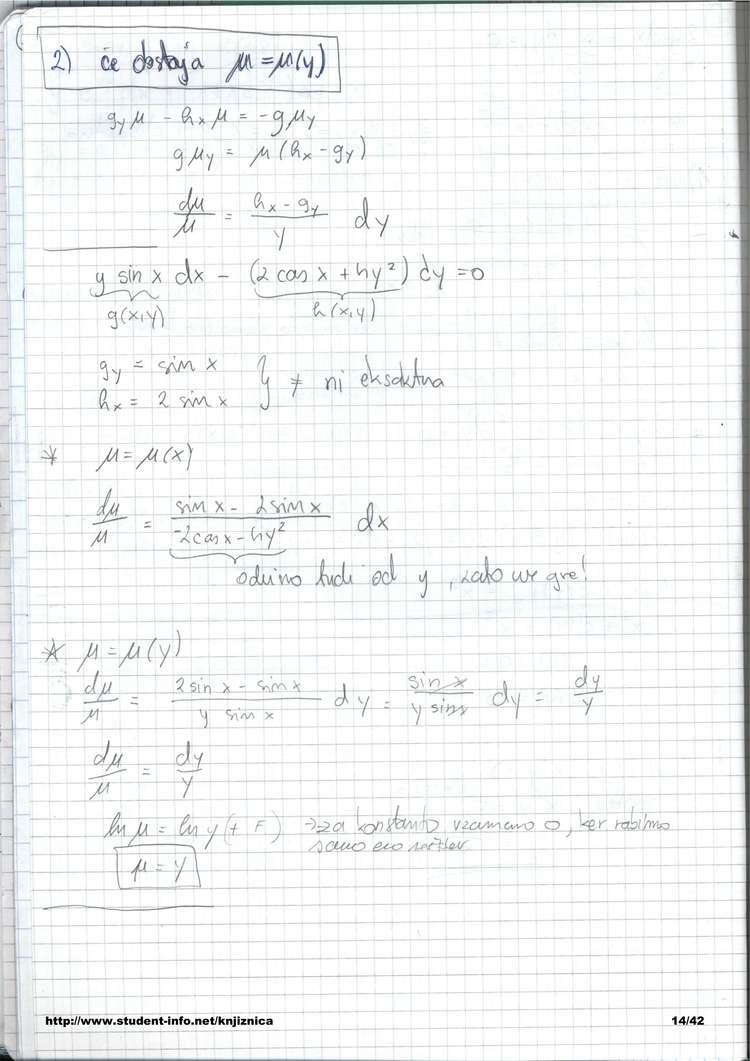 2) če obstaja μ = μ(y)
g_y μ - h_x μ = -g μ_y
g μ_y = μ (h_x - g_y)
dμ/μ = (h_x - g_y)/y dy
y sin x dx - (2 cos x + hy²) dy = 0
g(x,y) h(x,y)
g_y = sin x
h_x = 2 sin x } ≠ ni eksaktna
* μ = μ(x)
dμ/μ = (sin x - 2 sin x)/(-2 cos x - hy²) dx
odvisno tudi od y, zato ne gre!
* μ = μ(y)
dμ/μ = (2 sin x - sin x)/(y sin x) dy = sin x/(y sin x) dy = dy/y
dμ/μ = dy/y
ln μ = ln y (+ F) → za konstanto vzamemo 0, ker rabimo
samo eno rešitev
μ = y
http://www.student-info.net/knjiznica 14/42